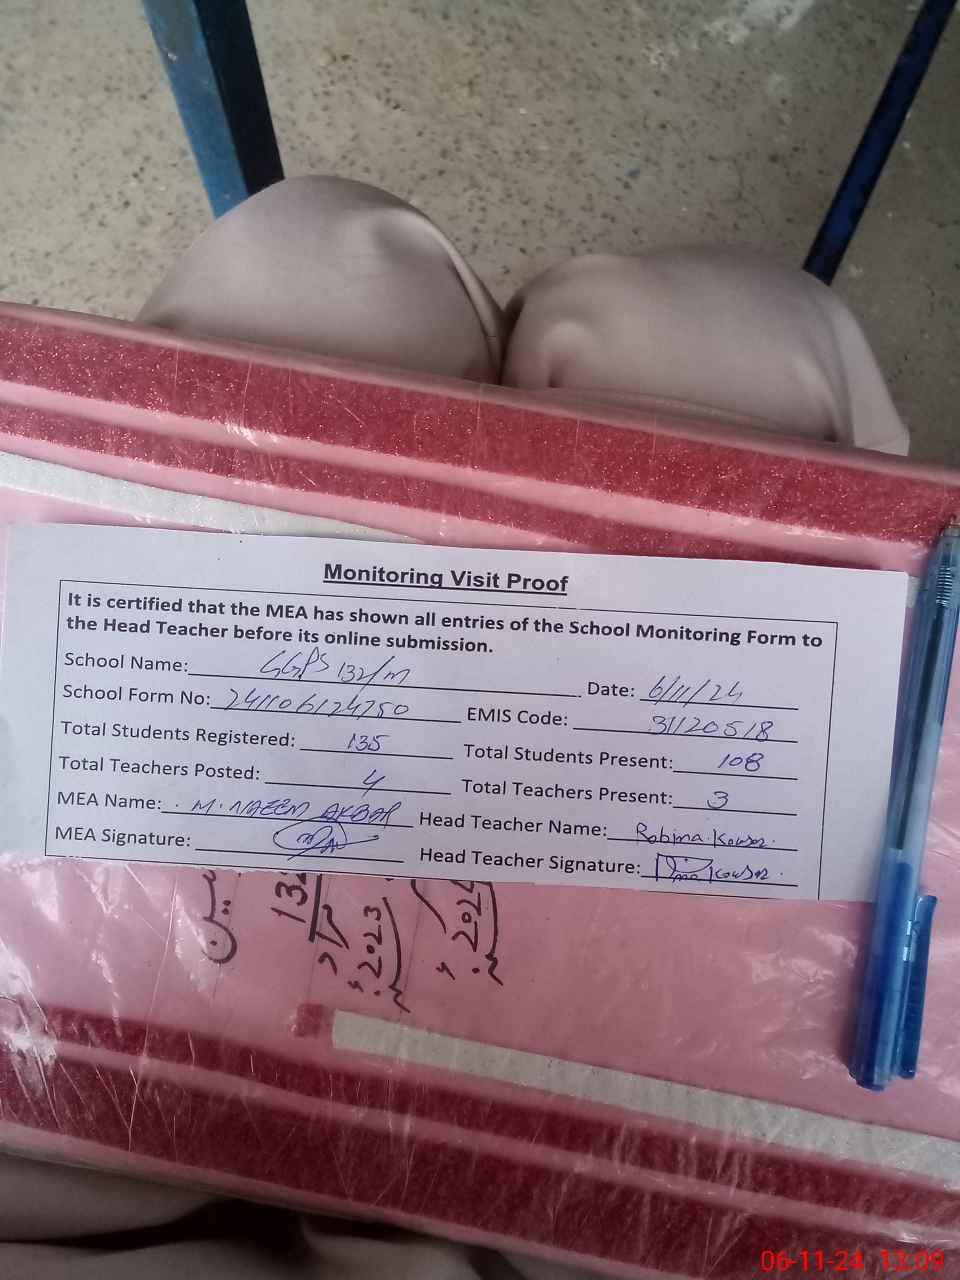 Monitoring Visit Proof
It is certified that the MEA has shown all entries of the School Monitoring Form to
the Head Teacher before its online submission.
School Name: GGPS 132/M Date: 6/11/24
School Form No: 241106124750 EMIS Code: 31120518
Total Students Registered: 135 Total Students Present: 108
Total Teachers Posted: 4 Total Teachers Present: 3
MEA Name: M. NAEEM AKBAR Head Teacher Name: Robina Kousar.
MEA Signature: Head Teacher Signature: Kousar.
2023
06-11-24 13:09